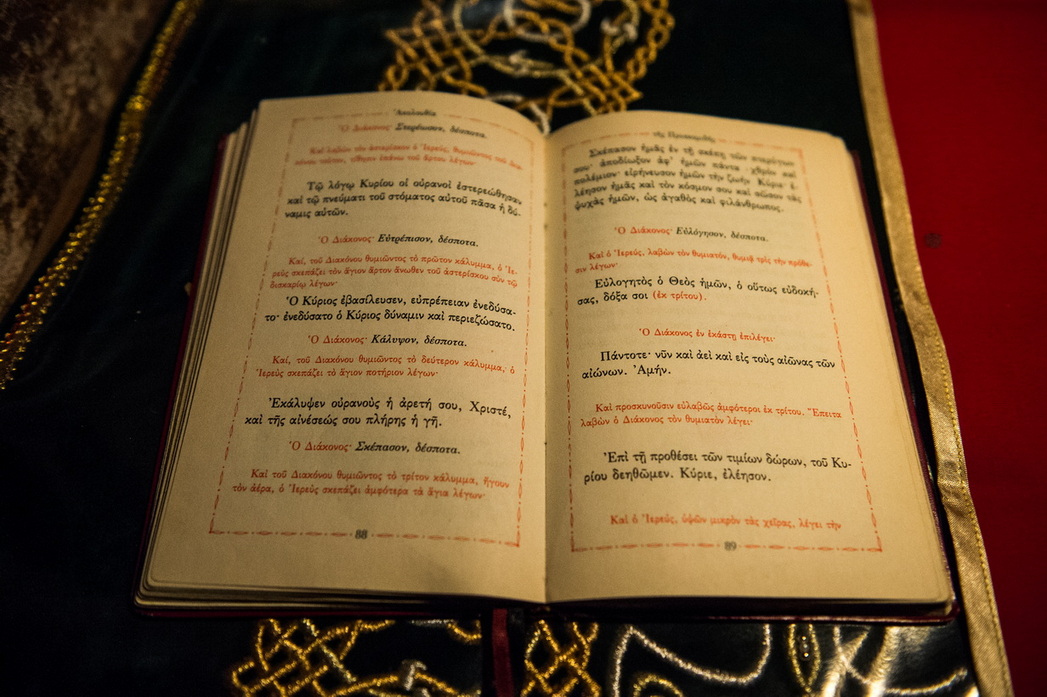 Ἀκολουθία
Ὁ Διάκονος· Στερέωσον, δέσποτα.
Καὶ λαβὼν τὸν ἀστερίσκον ὁ Ἱερεύς, θυμιῶντος τοῦ Δια-
κόνου τοῦτον, τίθησιν ἐπάνω τοῦ ἄρτου λέγων·
Τῷ λόγῳ Κυρίου οἱ οὐρανοὶ ἐστερεώθησαν
καὶ τῷ πνεύματι τοῦ στόματος αὐτοῦ πᾶσα ἡ δύ-
ναμις αὐτῶν.
Ὁ Διάκονος· Εὐτρέπισον, δέσποτα.
Καί, τοῦ Διακόνου θυμιῶντος τὸ πρῶτον κάλυμμα, ὁ Ἱε-
ρεὺς σκεπάζει τὸν ἅγιον ἄρτον ἄνωθεν τοῦ ἀστερίσκου σὺν τῷ
δισκαρίῳ λέγων·
Ὁ Κύριος ἐβασίλευσεν, εὐπρέπειαν ἐνεδύσα-
το· ἐνεδύσατο ὁ Κύριος δύναμιν καὶ περιεζώσατο.
Ὁ Διάκονος· Κάλυψον, δέσποτα.
Καί, τοῦ Διακόνου θυμιῶντος τὸ δεύτερον κάλυμμα, ὁ
Ἱερεὺς σκεπάζει τὸ ἅγιον ποτήριον λέγων·
Ἐκάλυψεν οὐρανοὺς ἡ ἀρετή σου, Χριστέ,
καὶ τῆς αἰνέσεώς σου πλήρης ἡ γῆ.
Ὁ Διάκονος· Σκέπασον, δέσποτα.
Καὶ τοῦ Διακόνου θυμιῶντος τὸ τρίτον κάλυμμα, ἤγουν
τὸν ἀέρα, ὁ Ἱερεὺς σκεπάζει ἀμφότερα τὰ ἅγια λέγων·
88
τῆς Προσκομιδῆς
Σκέπασον ἡμᾶς ἐν τῇ σκέπῃ τῶν πτερύγων
σου· ἀποδίωξον ἀφ' ἡμῶν πάντα ἐχθρὸν καὶ
πολέμιον· εἰρήνευσον ἡμῶν τὴν ζωήν· Κύριε, ἐ-
λέησον ἡμᾶς καὶ τὸν κόσμον σου καὶ σῶσον τὰς
ψυχὰς ἡμῶν, ὡς ἀγαθὸς καὶ φιλάνθρωπος.
Ὁ Διάκονος· Εὐλόγησον, δέσποτα.
Καὶ ὁ Ἱερεύς, λαβὼν τὸν θυμιατόν, θυμιᾷ τρὶς τὴν πρόθε-
σιν λέγων·
Εὐλογητὸς ὁ Θεὸς ἡμῶν, ὁ οὕτως εὐδοκή-
σας, δόξα σοι (ἐκ τρίτου).
Ὁ Διάκονος ἐν ἑκάστῃ ἐπιλέγει·
Πάντοτε· νῦν καὶ ἀεὶ καὶ εἰς τοὺς αἰῶνας τῶν
αἰώνων. Ἀμήν.
Καὶ προσκυνοῦσιν εὐλαβῶς ἀμφότεροι ἐκ τρίτου. Ἔπειτα
λαβὼν ὁ Διάκονος τὸν θυμιατὸν λέγει·
Ἐπὶ τῇ προθέσει τῶν τιμίων δώρων, τοῦ Κυ-
ρίου δεηθῶμεν. Κύριε, ἐλέησον.
Καὶ ὁ Ἱερεύς, ὑψῶν μικρὸν τὰς χεῖρας, λέγει τὴν
89